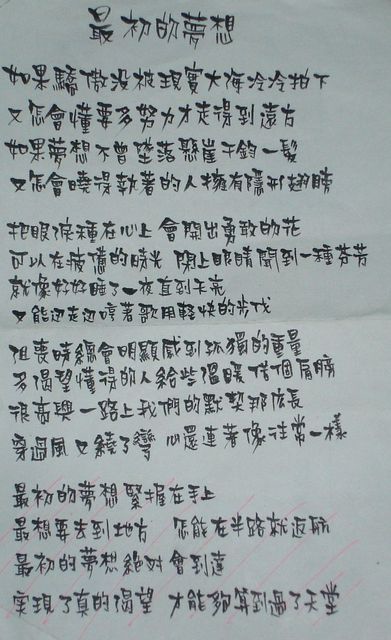 最初的夢想
如果驕傲没被現實大海冷冷拍下
又怎會懂要多努力才走得到遠方
如果夢想不曾墜落懸崖千鈞一髮
又怎會曉得執著的人擁有隱形翅膀
把眼淚種在心上 會開出勇敢的花
可以在疲憊的時光 閉上眼睛聞到一種芬芳
就像好好睡了一夜直到天亮
又能边走边哼著歌用輕快的步伐
沮喪時總會明顯感到孤獨的重量
多渴望懂得的人給些溫暖借個肩膀
很高興一路上我們的默契那麼長
穿過風又繞了彎 心還連著像往常一樣
最初的夢想緊握在手上
最想要去到地方 怎能在半路就返航
最初的夢想絕对會到達
實現了真的渴望 才能夠算到過了天堂